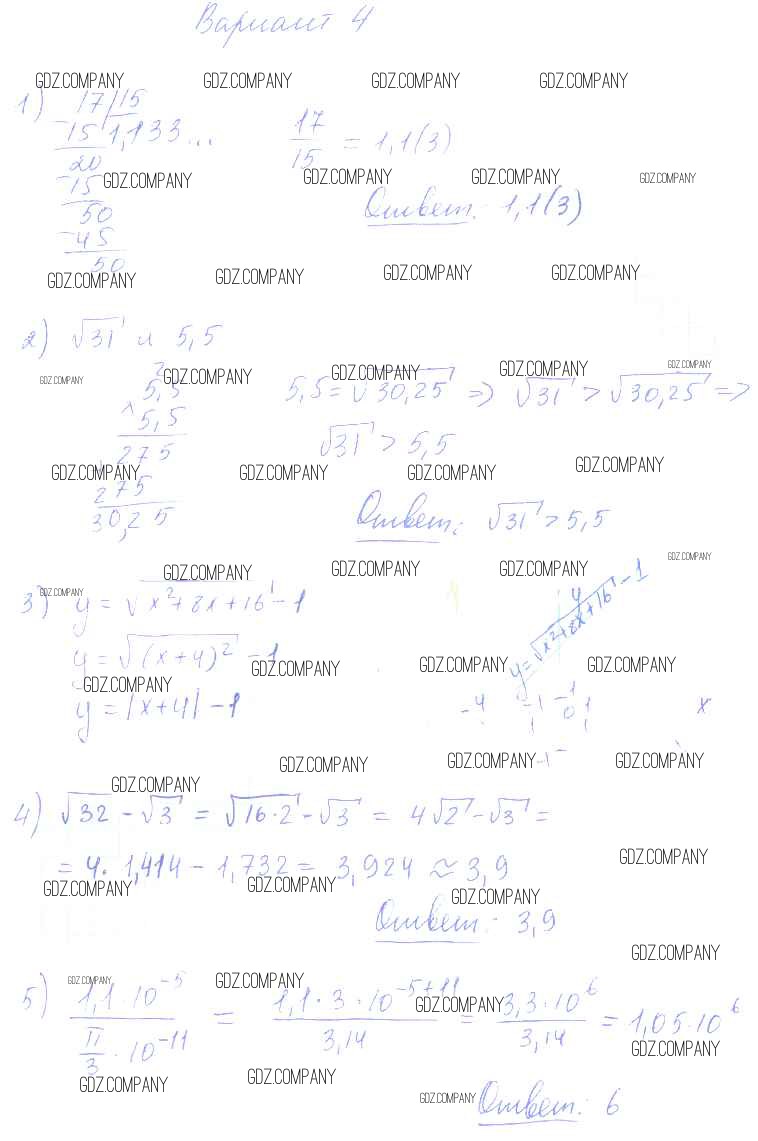 Вариант 4
GDZ.COMPANY GDZ.COMPANY GDZ.COMPANY GDZ.COMPANY
1) 17 | 15
- 15 1,133... 17/15 = 1,1(3)
20
GDZ.COMPANY GDZ.COMPANY GDZ.COMPANY GDZ.COMPANY
- 15
50 Ответ: 1,1(3)
- 45
50
GDZ.COMPANY GDZ.COMPANY GDZ.COMPANY GDZ.COMPANY
2) √31 и 5,5
GDZ.COMPANY GDZ.COMPANY GDZ.COMPANY GDZ.COMPANY GDZ.COMPANY
2
5,5 5,5 = √30,25 => √31 > √30,25 =>
× 5,5
275 √31 > 5,5
GDZ.COMPANY GDZ.COMPANY GDZ.COMPANY GDZ.COMPANY
+ 275
30,25 Ответ: √31 > 5,5
GDZ.COMPANY GDZ.COMPANY GDZ.COMPANY GDZ.COMPANY GDZ.COMPANY
3) y = √x²+8x+16 - 1
y
y = √x²+8x+16 - 1
y = √(x+4)² - 1
GDZ.COMPANY GDZ.COMPANY GDZ.COMPANY
GDZ.COMPANY
y = |x+4| - 1
-4 -1 0 1 x
1
-1
GDZ.COMPANY GDZ.COMPANY GDZ.COMPANY
GDZ.COMPANY
4) √32 - √3 = √16·2 - √3 = 4√2 - √3 =
= 4 · 1,414 - 1,732 = 3,924 ≈ 3,9
GDZ.COMPANY
GDZ.COMPANY GDZ.COMPANY GDZ.COMPANY
Ответ: 3,9
GDZ.COMPANY
GDZ.COMPANY GDZ.COMPANY GDZ.COMPANY
5) 1,1·10⁻⁵ / (π/3 · 10⁻¹¹) = 1,1·3·10⁻⁵⁺¹¹ / 3,14 = 3,3·10⁶ / 3,14 = 1,05·10⁶
GDZ.COMPANY
GDZ.COMPANY GDZ.COMPANY GDZ.COMPANY
Ответ: 6